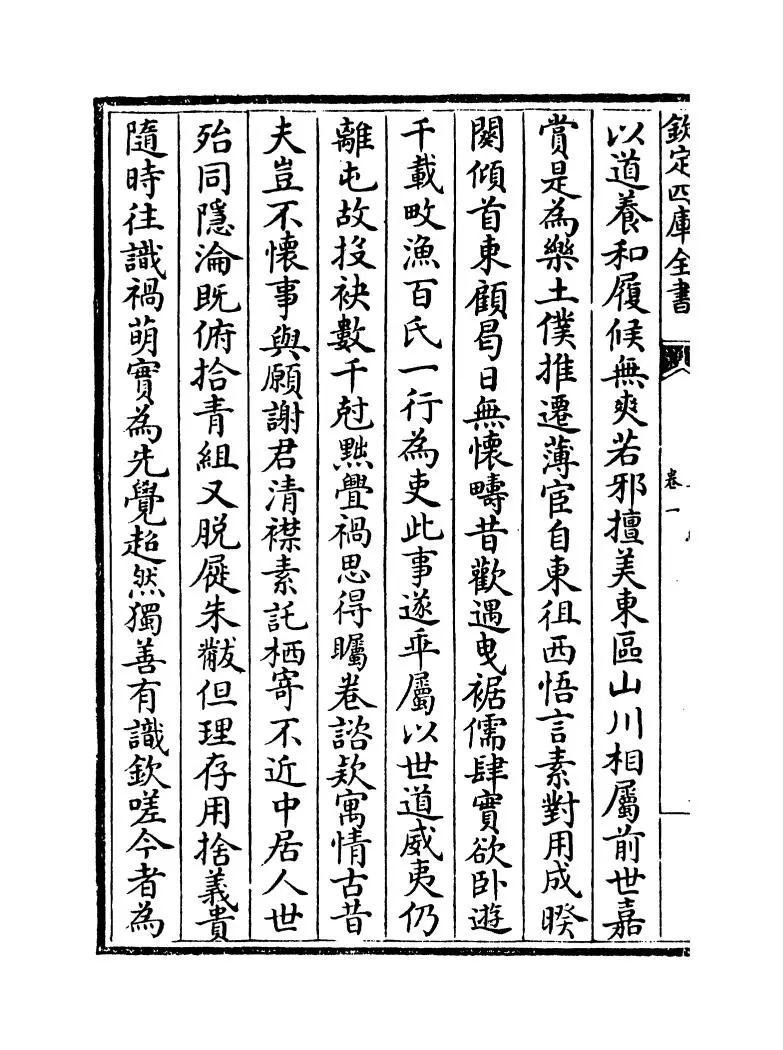 欽定四庫全書
卷一
以道養和履候無爽若邪擅美東區山川相屬前世嘉
賞是為樂土僕推遷薄宦自東徂西悟言素對用成暌
闋傾首東顧曷日無懷疇昔歡遇曳裾儒肆實欲卧遊
千載畋漁百氏一行為吏此事遂乖屬以世道威夷仍
離屯故投袂數千尅黜釁禍思得矚卷諮欵寓情古昔
夫豈不懐事與願謝君清襟素託栖寄不近中居人世
殆同隱淪既俯拾青組又脱屣朱黻但理存用捨義貴
隨時往識禍萌實為先覺超然獨善有識欽嗟今者為